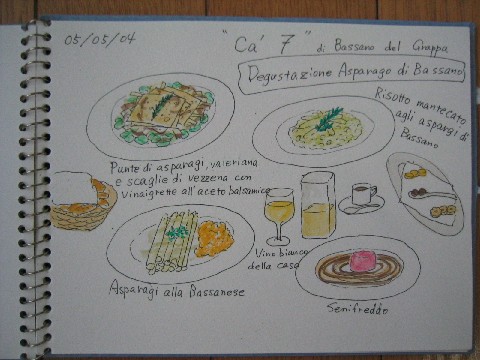 05/05/04
"Ca' 7" di Bassano del Grappa
Degustazione Asparago di Bassano
Risotto mantecato
agli aspargi di
Bassano
Punte di asparagi, valeriana
e scaglie di vezzena con
vinsigrette all'aceto balsamico
Vino bianco
della casa
Asparagi alla Bassanese
Semifreddo